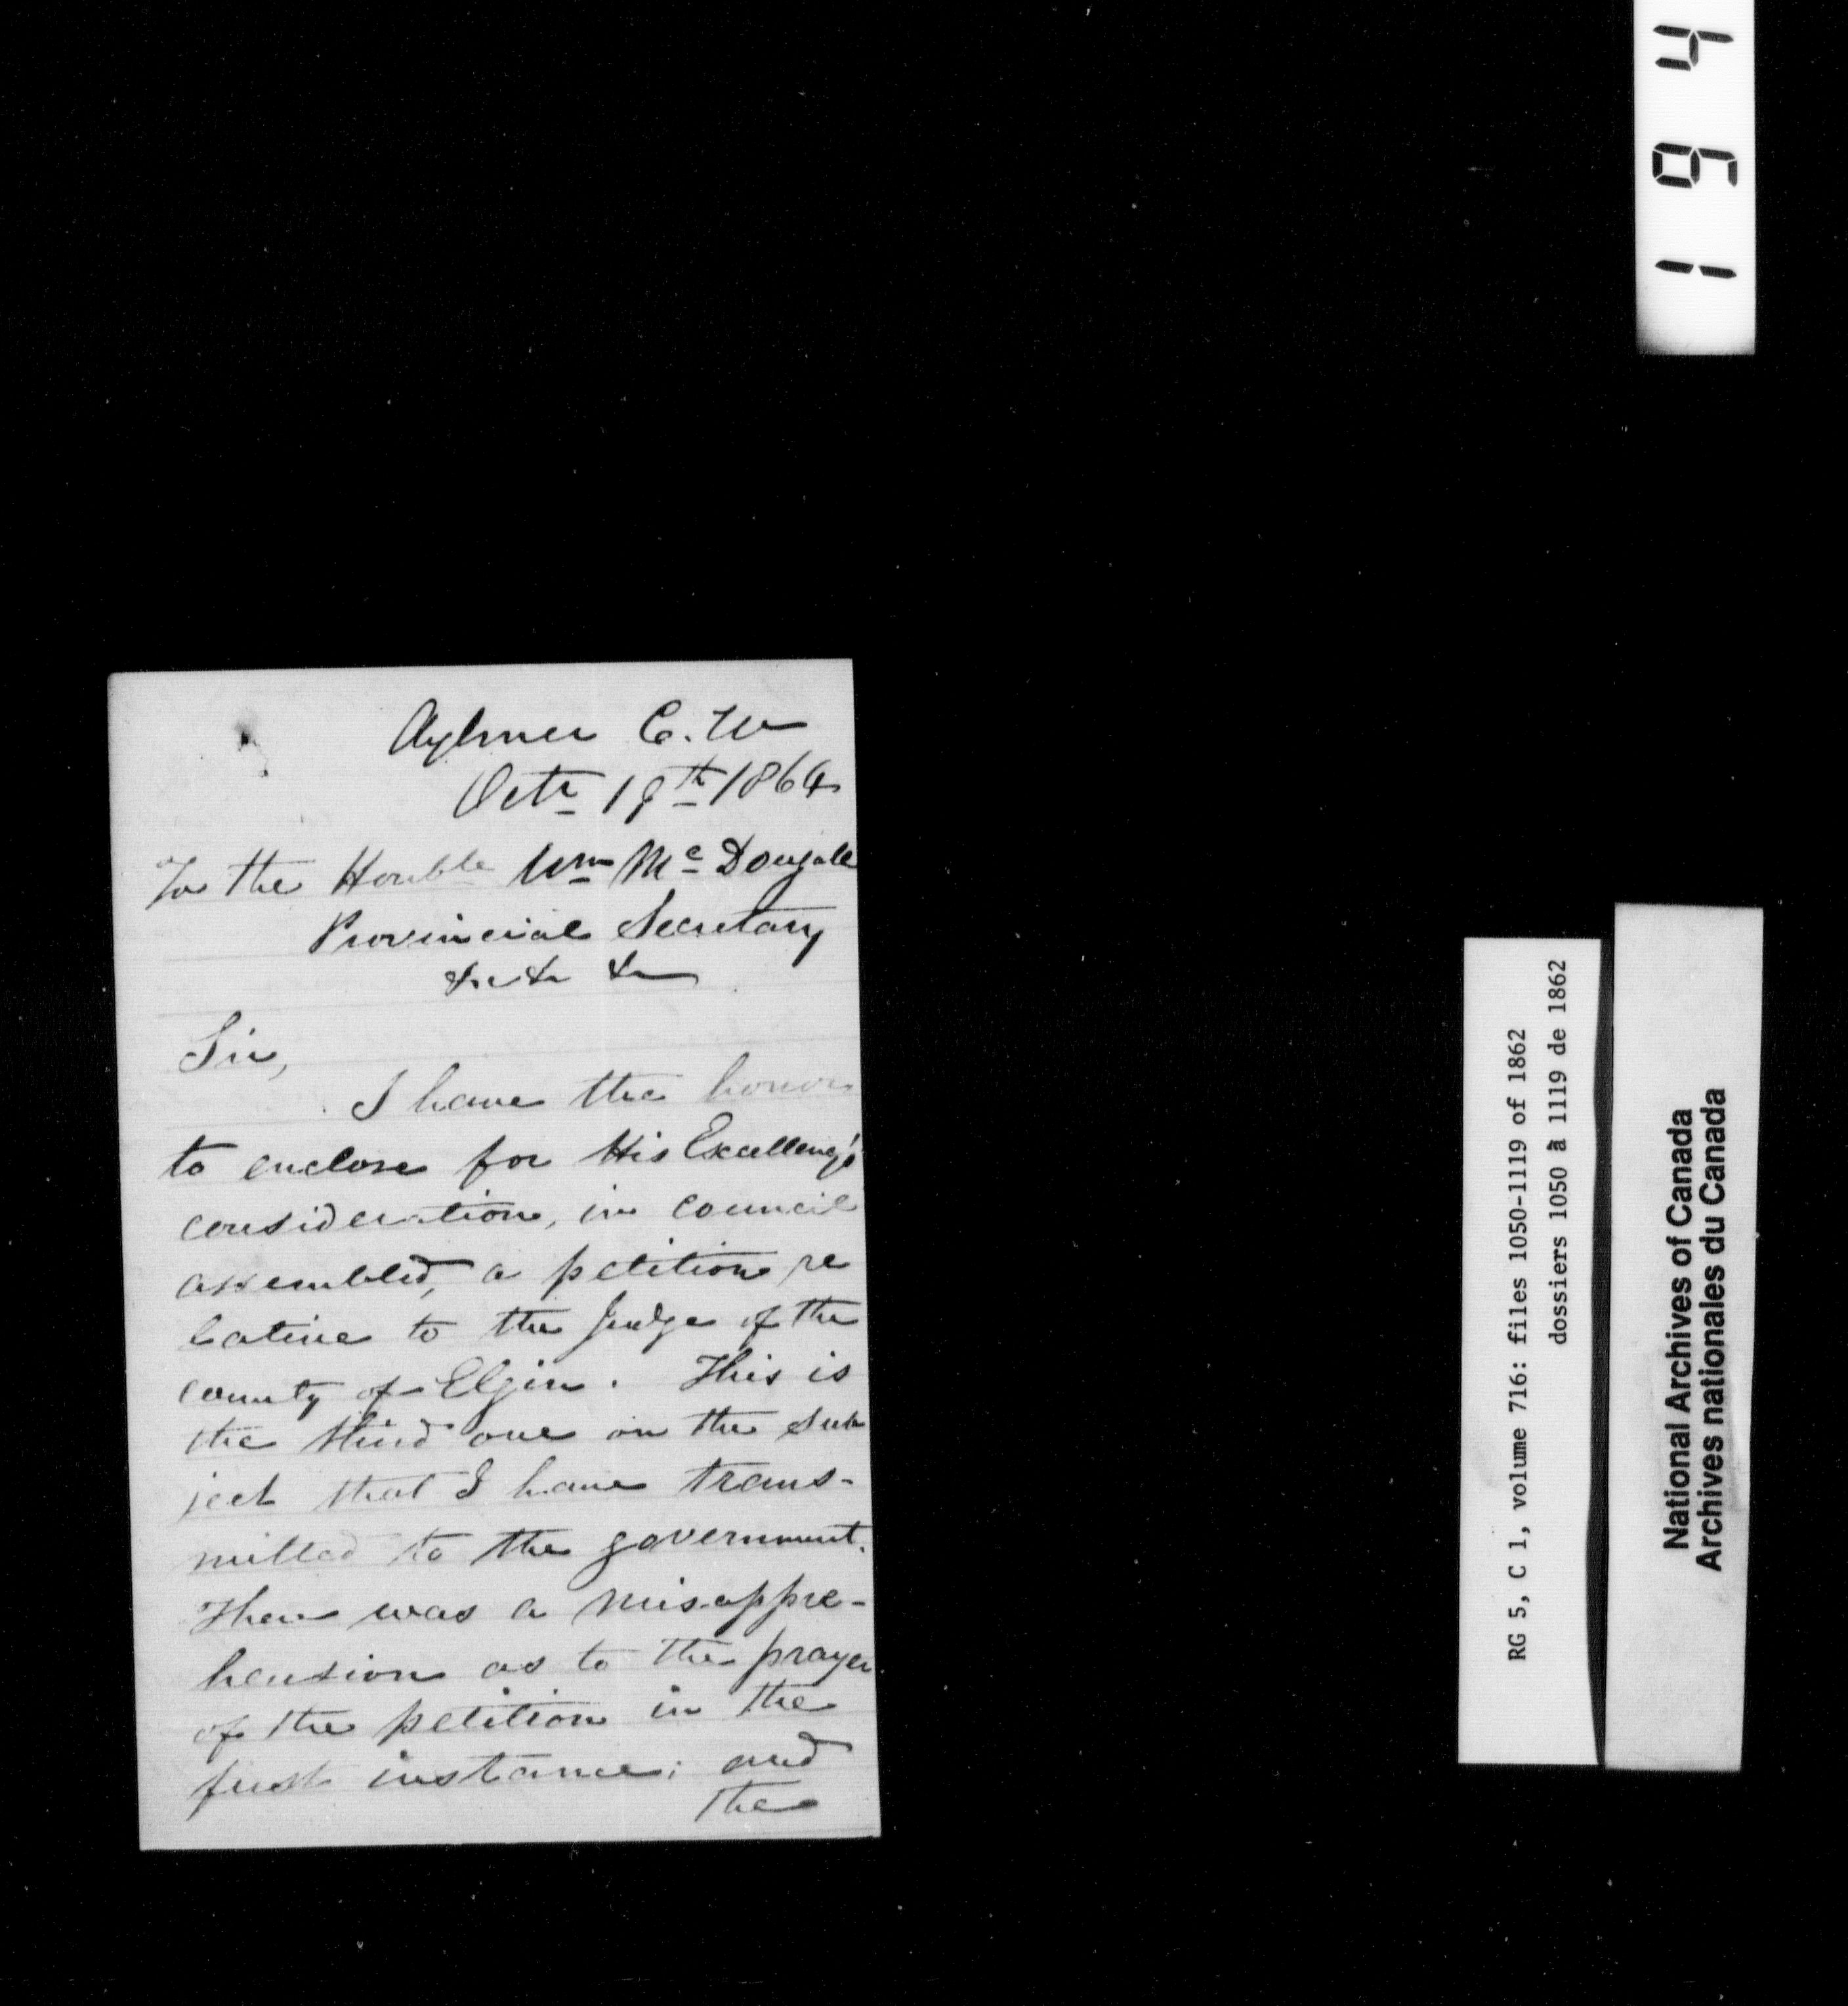 Aylmer C. W
Octr 19th 1864
To the Honble Wm Mc Dougall
Provincial Secretary
&c &c &c
Sir,
I have the honor
to enclose for His Excellency's
consideration, in council
assembled, a petition re
lative to the Judge of the
county of Elgin. This is
the third one on the sub
ject that I have trans-
mitted to the government.
There was a misappre-
hension as to the prayer
of the petition in the
first instance; and
the
194
RG 5, C 1, volume 716: files 1050-1119 of 1862
dossiers 1050 à 1119 de 1862
National Archives of Canada
Archives nationales du Canada